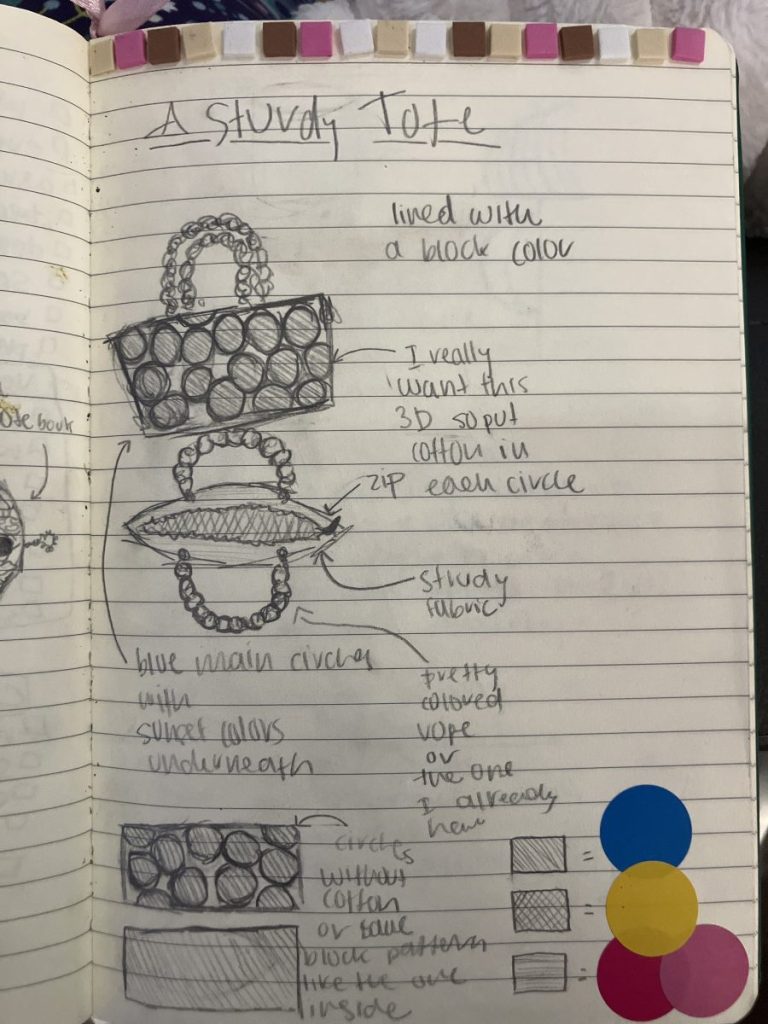 A Sturdy Tote
lined with
a block color
I really
want this
3D so put
cotton in
each circle
zip
sturdy
fabric
blue main circles
with
sunset colors
underneath
pretty
colored
rope
or
the one
I already
have
circles
without
cotton
or same
block pattern
like the one
inside
=
=
=